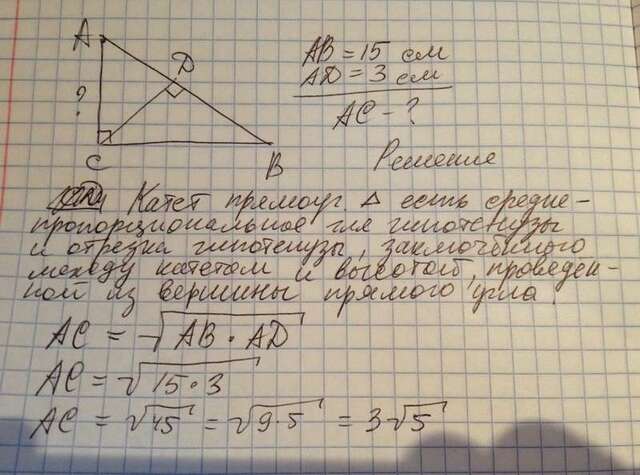 A
D
?
C
B
AB = 15 см
AD = 3 см
AC - ?
Решение
Катет прямоуг △ есть средне-
пропорциональное для гипотенузы
и отрезка гипотенузы, заключённого
между катетом и высотой, проведен-
ной из вершины прямого угла.
AC = √AB · AD
AC = √15·3
AC = √45 = √9·5 = 3√5